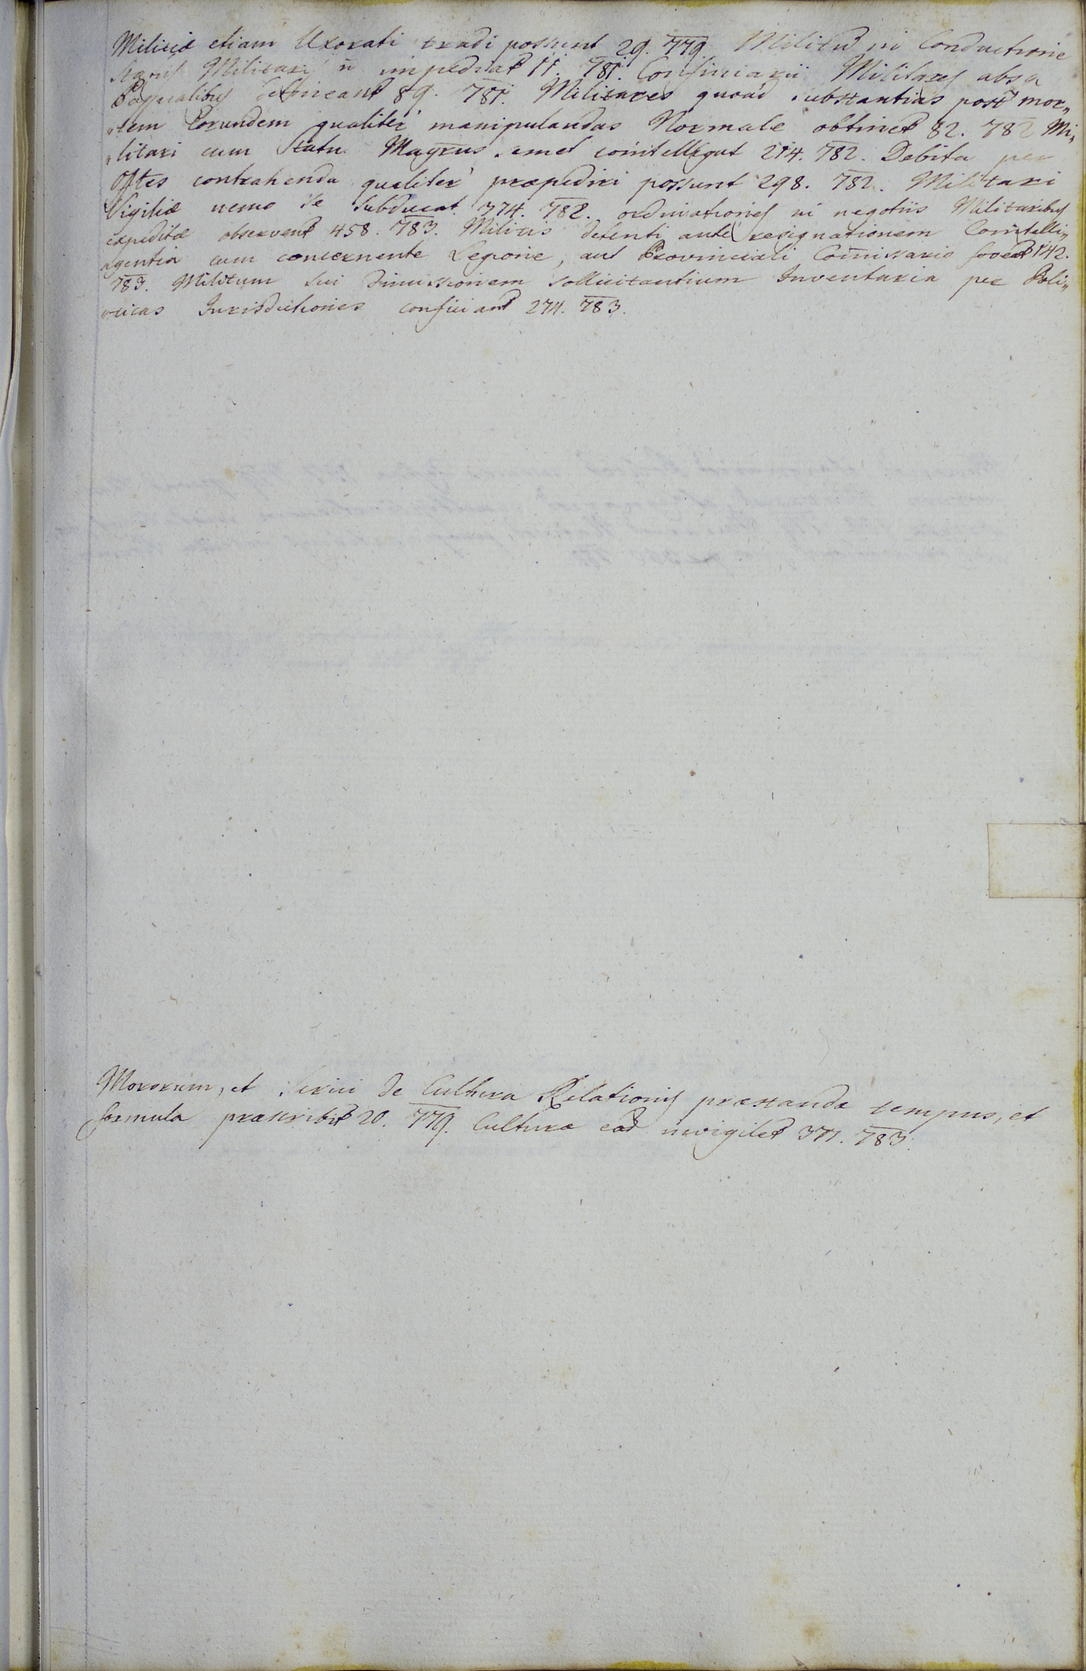 Militiæ etiam Uxorati tradi possunt 29. 779. Militū in Conductione
Militari ñ impediat 11. 781. Confiniarii Militares absq
Passualibus detineant 89. 781. Militares quoad substantias post mor„
„tem Eorundem qualiter manipulandas Normale obtinet 82. 782 Mi„
„litari cum Statu Magtrus semet cointelligat 214. 782. Debita per
Offles contrahenda qualiter præpediri possunt 298. 782. Militari
Vigiliæ nemo se subducat 374. 782. ordinationes in negotiis Militaribus
expeditæ observent 458. 783. Milites detenti ante resignationem Cointelli„
„gentia cum concernente Legione, aut Provinciali Comissario foveat 142.
783. Militum sui Dimissionem sollicitantium Inventaria per Poli„
„ticas Jurisdictiones conficiant 274. 783.
Mororum, et Serici de Cultura Relationis præstandæ tempus, et
formula præscribit 20. 779. Culturæ ead invigilet 371. 783.